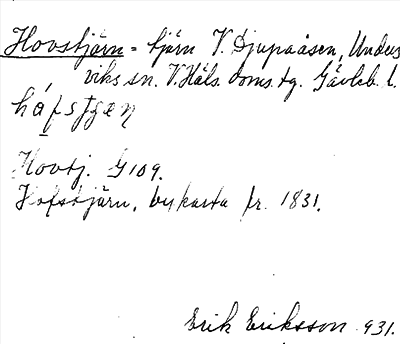 Hovstjärn = tjärn V. Djupaåsen, Unders
viks sn. V. Häls. doms.tg. Gävleb. l.
háfstjæn
Hovtj. G109.
Hofstjärn, bykarta fr. 1831.
Erik Eriksson 931.